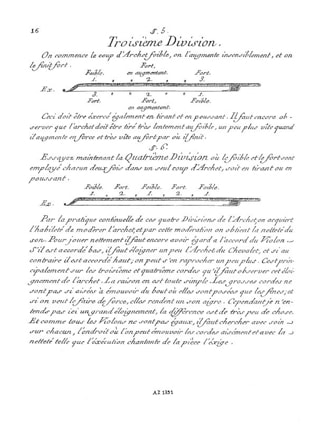 16
§. 5.
Troisième Division.
On commence le coup d'Archet foible, on l'augmente insensiblement, et on
le finit fort.
Fort,
Foible. en augmentant. Fort.
1. 2. 3.
Ex.
3. 2. 1.
Fort. Fort, Foible.
en augmentant.
Ceci doit être éxercé également en tirant et en poussant. Il faut encore ob-
server que l'archet doit être tiré très lentement au foible, un peu plus vite quand
il augmente en force et très vite au fort par où il finit.
§. 6.
Essayez maintenant la Quatrième Division où le foible et le fort sont
employé chacun deux fois dans un seul coup d'Archet, soit en tirant ou en
poussant.
Foible. Fort. Foible. Fort. Foible.
1. 2. 1. 2. 1.
Ex.
Par la pratique continuelle de ces quatre Divisions de l'Archet, on acquiert
l'habileté de modérer l'archet, et par cette modération on obtient la netteté du
son. Pour jouer nettement il faut encore avoir égard à l'accord du Violon
S'il est accordé bas, il faut éloigner un peu l'Archet du Chevalet, et si au
contraire il est accordé haut; on peut s'en rapocher un peu plus. C'est prin-
cipalement sur les troisième et quatrième cordes qu'il faut observer cet éloi-
gnement de l'archet. La raison en est toute simple. Les grosses cordes ne
sont pas si aisées à émouvoir du bout où elles sont posées que les fines, et
si on veut le faire de force, elles rendent un son aigre. Cependant je n'en-
tends pas ici un grand éloignement, la différence est de très peu de chose.
Et comme tous les Violons ne sont pas égaux, il faut chercher avec soin
sur chacun, l'endroit où l'on peut émouvoir les cordes aisément et avec la
netteté telle que l'éxécution chantante de la pièce l'éxige.
AZ 1351